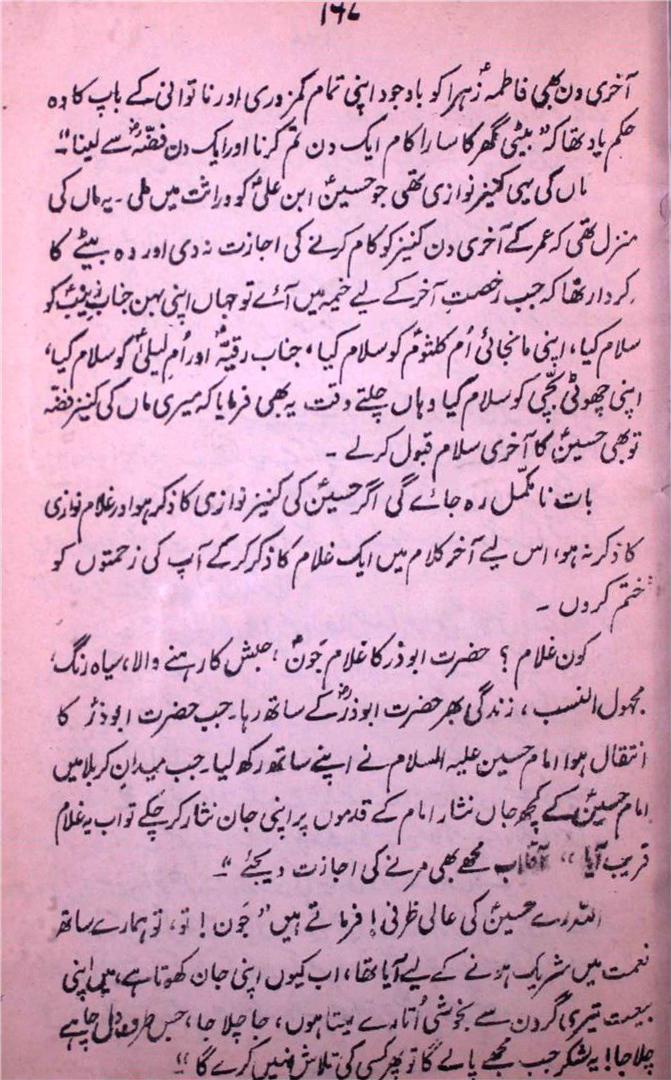 ۱۶۷
آخری دن بھی فاطمہ زہراؑ کو باوجود اپنی تمام کمزوری اور ناتوانی کے باپ کا وہ
حکم یاد تھا کہ ”بیٹی گھر کا سارا کام ایک دن تم کرنا اور ایک دن فضّہؓ سے لینا“۔
ماں کی یہی کنیز نوازی تھی جو حسینؑ ابن علیؑ کو وراثت میں ملی ۔ یہ ماں کی
منزل تھی کہ عمر کے آخری دن کنیز کو کام کرنے کی اجازت نہ دی اور وہ بیٹے کا
کردار تھا کہ جب رخصتِ آخر کے لیے خیمہ میں آئے تو جہاں اپنی بہن جناب زینبؑ کو
سلام کیا، اپنی مانجائی اُم کلثومؑ کو سلام کیا، جناب رقیہؑ اور اُمِ لیلیٰؑ کو سلام کیا،
اپنی چھوٹی بچّی کو سلام کیا وہاں چلتے وقت یہ بھی فرمایا کہ میری ماں کی کنیز فضّہ
تو بھی حسینؑ کا آخری سلام قبول کر لے ۔
بات نامکمّل رہ جائے گی اگر حسینؑ کی کنیز نوازی کا ذکر ہو اور غلام نوازی
کا ذکر نہ ہو، اس لیے آخر کلام میں ایک غلام کا ذکر کر کے آپ کی زحمتوں کو
ختم کر دوں ۔
کون غلام ؟ حضرت ابوذر کا غلام جَونؑ ، حبش کا رہنے والا، سیاہ رنگ،
مجہول النسب ، زندگی بھر حضرت ابوذرؓ کے ساتھ رہا۔ جب حضرت ابوذرؓ کا
انتقال ہوا امام حسین علیہ السلام نے اپنے ساتھ رکھ لیا۔ جب میدانِ کربلا میں
امام حسینؑ کے کچھ جاں نثار امام کے قدموں پر اپنی جان نثار کر چکے تو اب یہ غلام
قریب آیا ” آقا اب مجھے بھی مرنے کی اجازت دیجئے “۔
اللہ رے حسینؑ کی عالی ظرفی! فرماتے ہیں ”جَون! تو، تو ہمارے ساتھ
نعمت میں شریک ہونے کے لیے آیا تھا، اب کیوں اپنی جان کھوتا ہے، میں اپنی
بیعت تیری گردن سے بخوشی اُتارے لیتا ہوں، جا چلا جا، جس طرف دل چاہے
چلا جا! یہ لشکر جب مجھے پالے گا تو پھر کسی کی تلاش نہیں کرے گا “